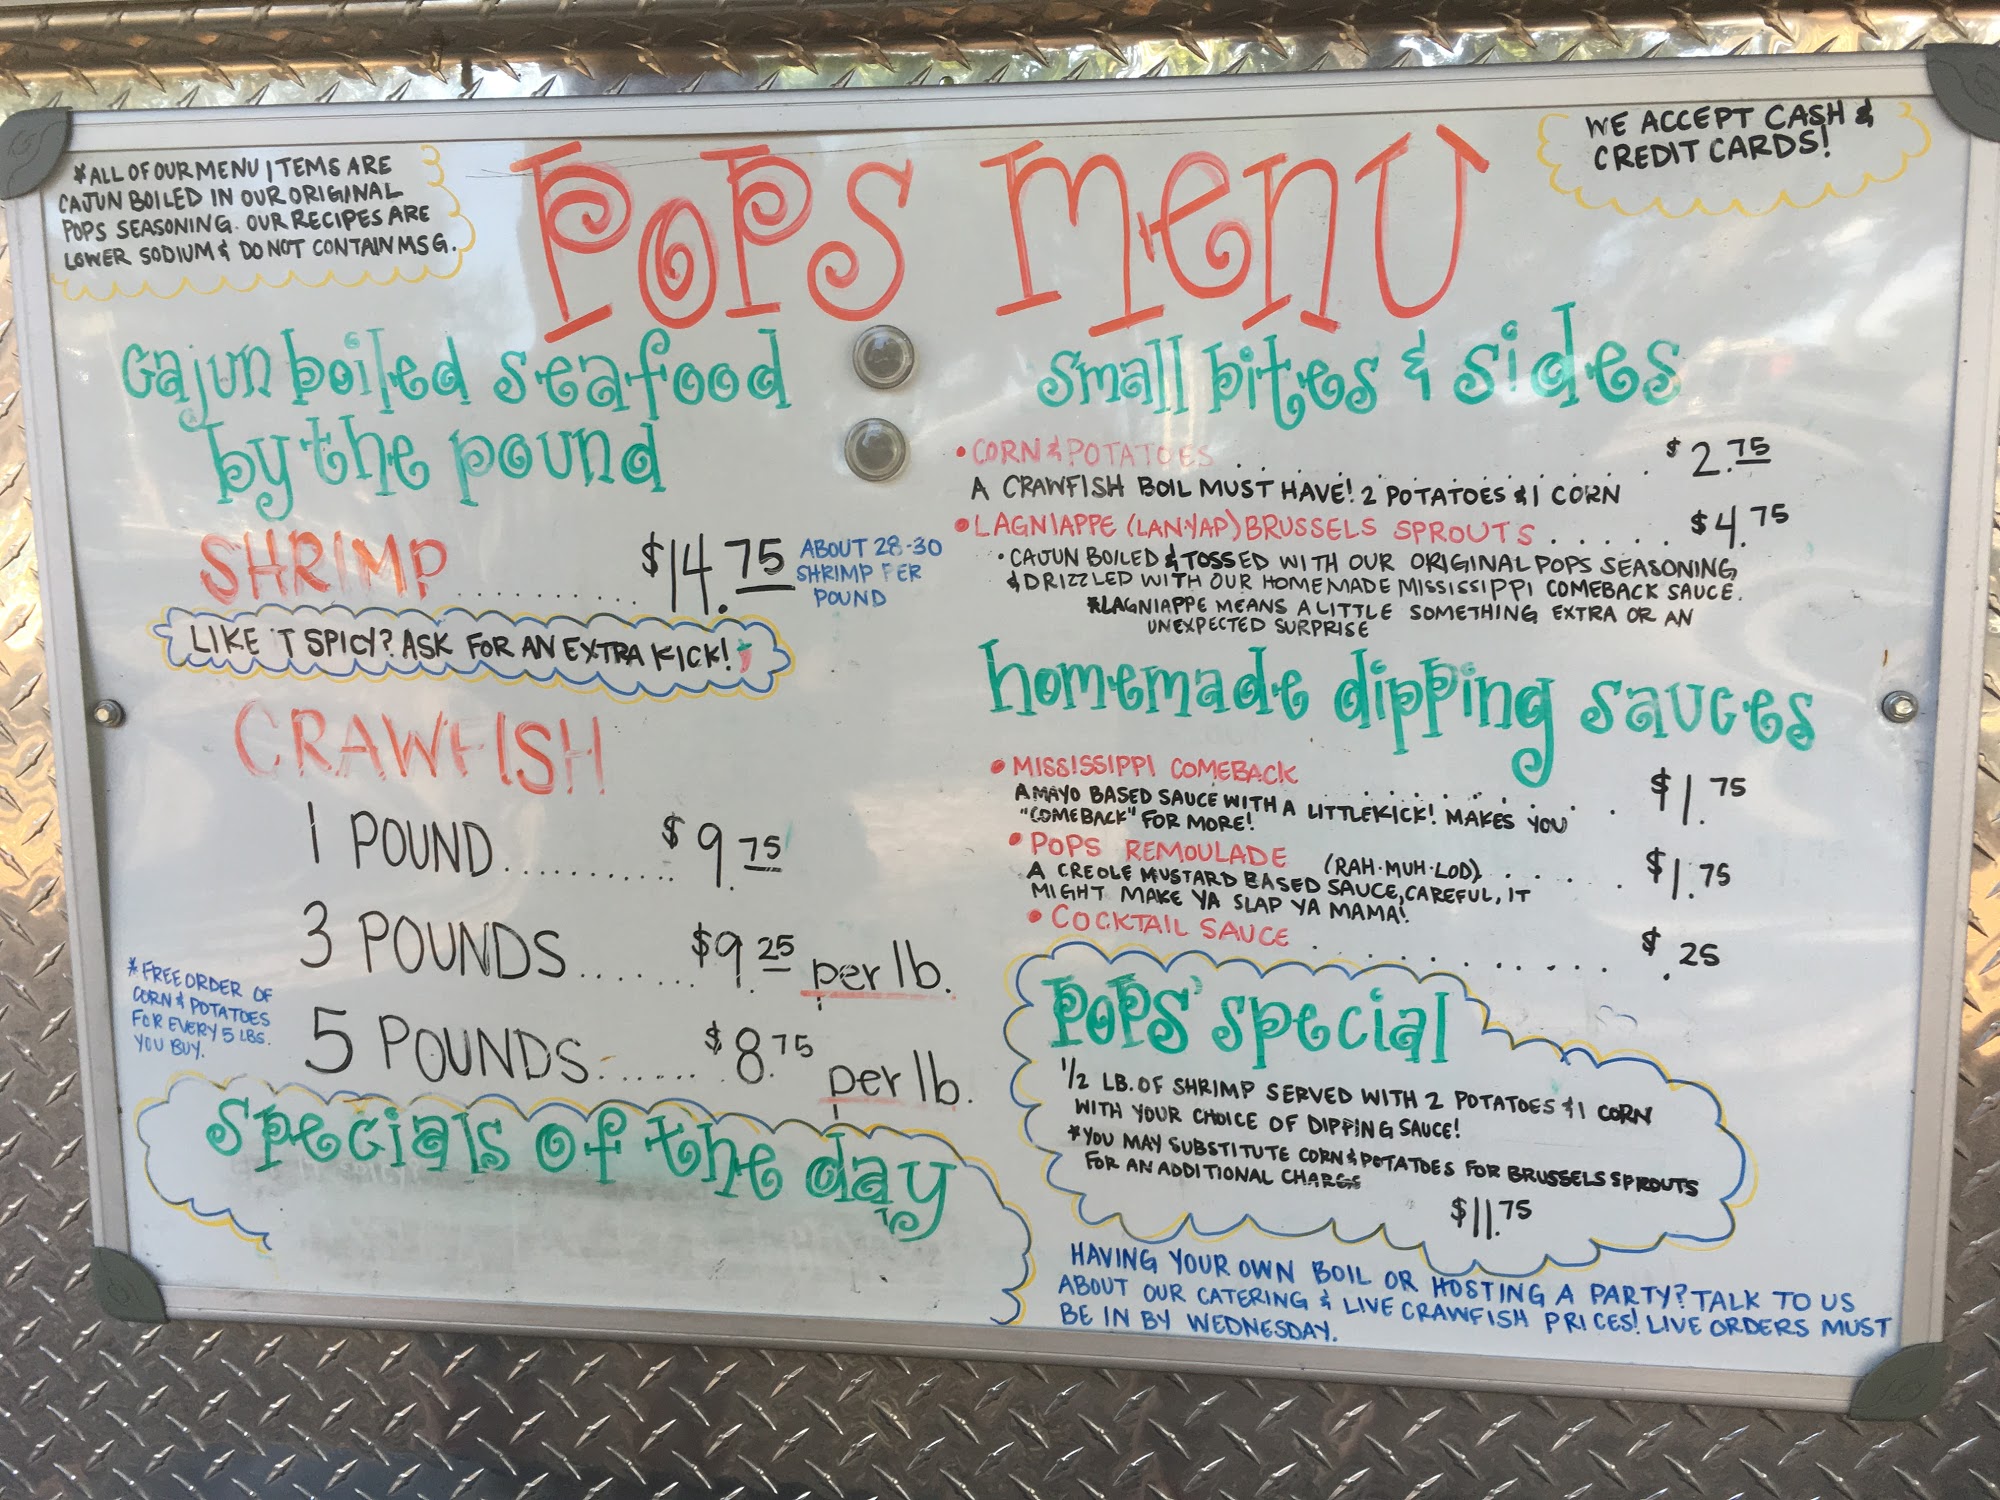 *ALL OF OUR MENU ITEMS ARE
CAJUN BOILED IN OUR ORIGINAL
POPS SEASONING. OUR RECIPES ARE
LOWER SODIUM & DO NOT CONTAIN MSG.
POPS MENU
WE ACCEPT CASH &
CREDIT CARDS!
Cajun boiled seafood
by the pound
SHRIMP .......... $14.75
ABOUT 28-30
SHRIMP PER
POUND
LIKE IT SPICY? ASK FOR AN EXTRA KICK!
CRAWFISH
1 POUND........... $9.75
3 POUNDS...... $9.25 per lb.
5 POUNDS....... $8.75 per lb.
*FREE ORDER OF
CORN & POTATOES
FOR EVERY 5 LBS.
YOU BUY.
Specials of the day
Small bites & sides
• CORN & POTATOES ........ $2.75
A CRAWFISH BOIL MUST HAVE! 2 POTATOES & 1 CORN
• LAGNIAPPE (LAN·YAP) BRUSSELS SPROUTS ...... $4.75
• CAJUN BOILED & TOSSED WITH OUR ORIGINAL POPS SEASONING
& DRIZZLED WITH OUR HOMEMADE MISSISSIPPI COMEBACK SAUCE.
*LAGNIAPPE MEANS A LITTLE SOMETHING EXTRA OR AN
UNEXPECTED SURPRISE
homemade dipping sauces
• MISSISSIPPI COMEBACK ........ $1.75
A MAYO BASED SAUCE WITH A LITTLE KICK! MAKES YOU
"COMEBACK" FOR MORE!
• POPS REMOULADE (RAH·MUH·LOD)...... $1.75
A CREOLE MUSTARD BASED SAUCE, CAREFUL, IT
MIGHT MAKE YA SLAP YA MAMA!
• COCKTAIL SAUCE ........... $.25
POPS' special
1/2 LB. OF SHRIMP SERVED WITH 2 POTATOES & 1 CORN
WITH YOUR CHOICE OF DIPPING SAUCE!
*YOU MAY SUBSTITUTE CORN & POTATOES FOR BRUSSELS SPROUTS
FOR AN ADDITIONAL CHARGE
$11.75
HAVING YOUR OWN BOIL OR HOSTING A PARTY? TALK TO US
ABOUT OUR CATERING & LIVE CRAWFISH PRICES! LIVE ORDERS MUST
BE IN BY WEDNESDAY.